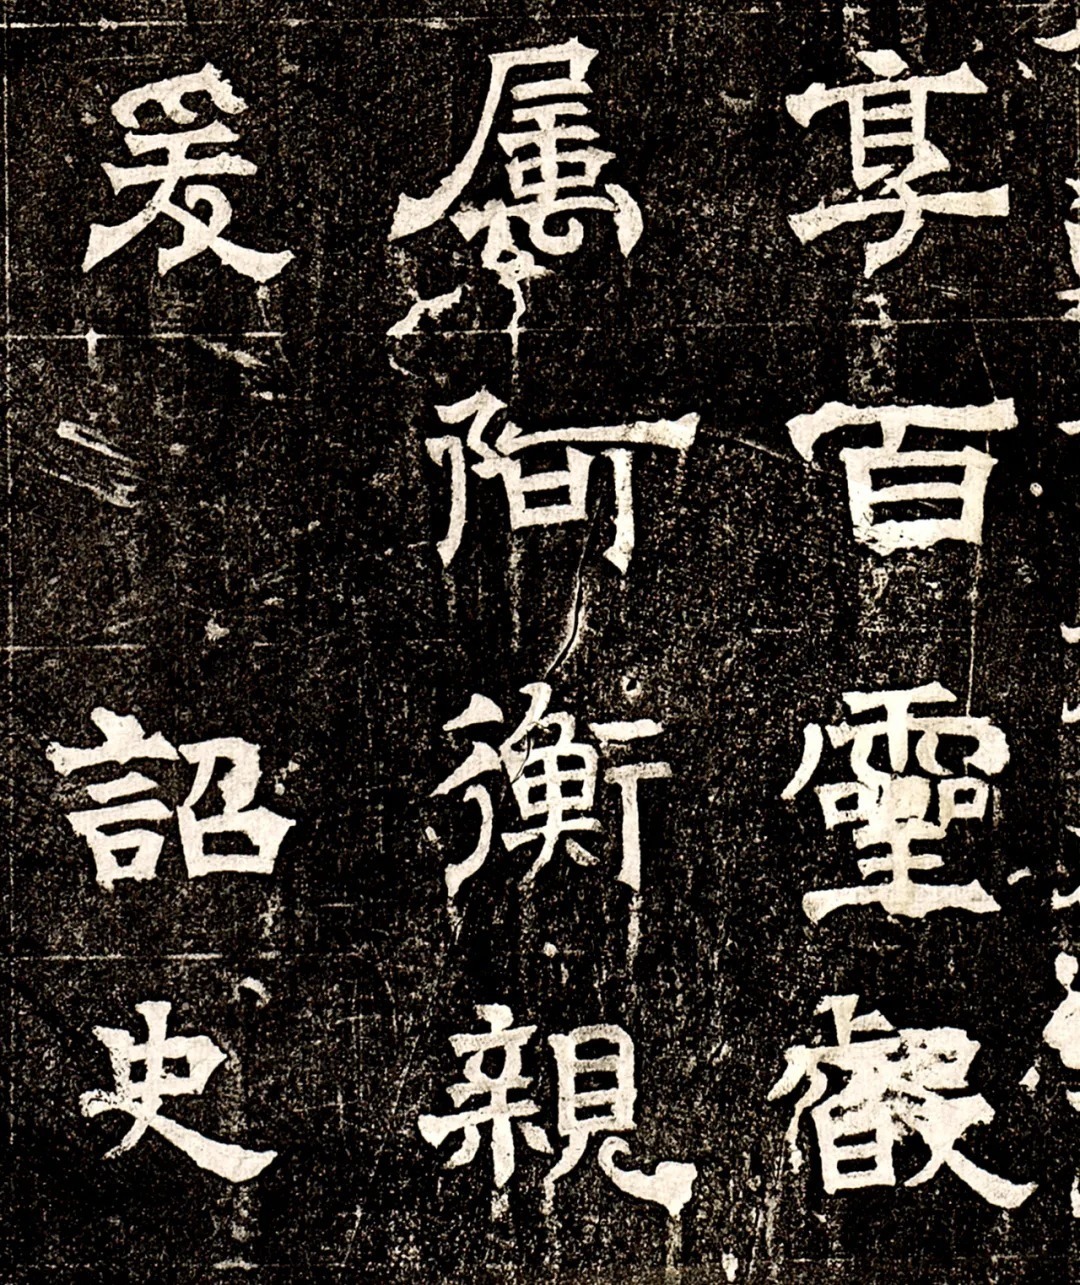 享百靈叡
属阿衡親
爰詔史